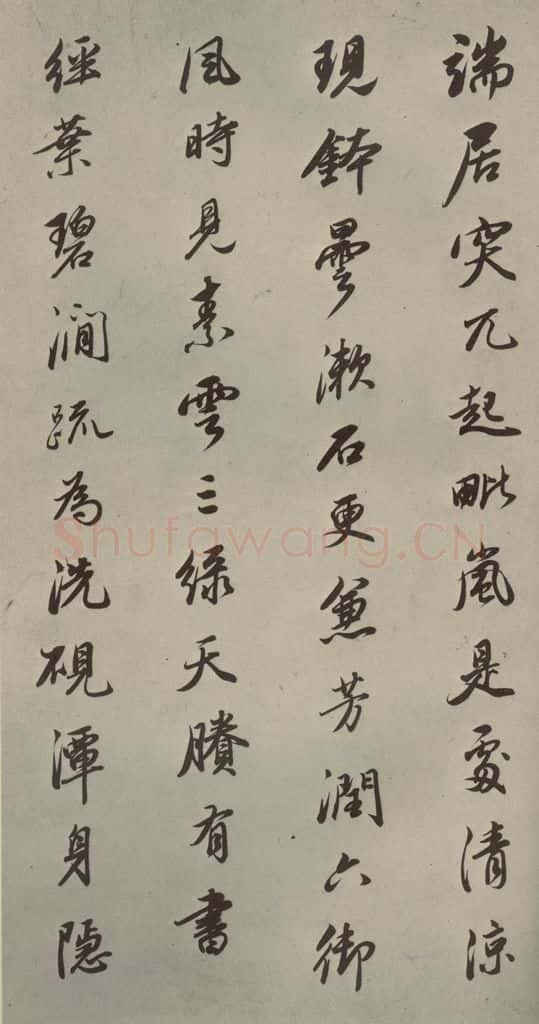 端居突兀起毗嵐是處清涼
現鉢曇漱石更兼芳潤六御
風時見素雲三綠天賸有書
經葉碧澗疏為洗硯潭身隱
Shufawang.CN